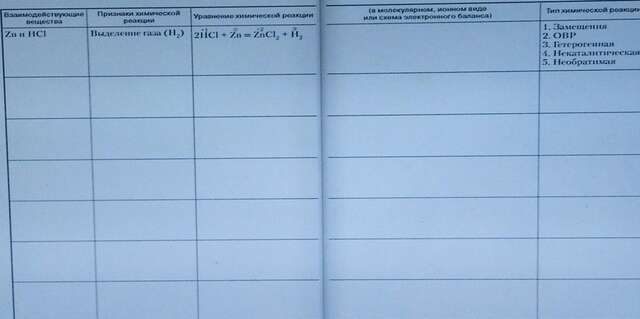 Взаимодействующие вещества
Признаки химической реакции
Уравнение химической реакции
(в молекулярном, ионном виде
или схема электронного баланса)
Тип химической реакции
Zn и HCl
Выделение газа (H₂)
2HCl + Zn = ZnCl₂ + H₂
1. Замещения
2. ОВР
3. Гетерогенная
4. Некаталитическая
5. Необратимая